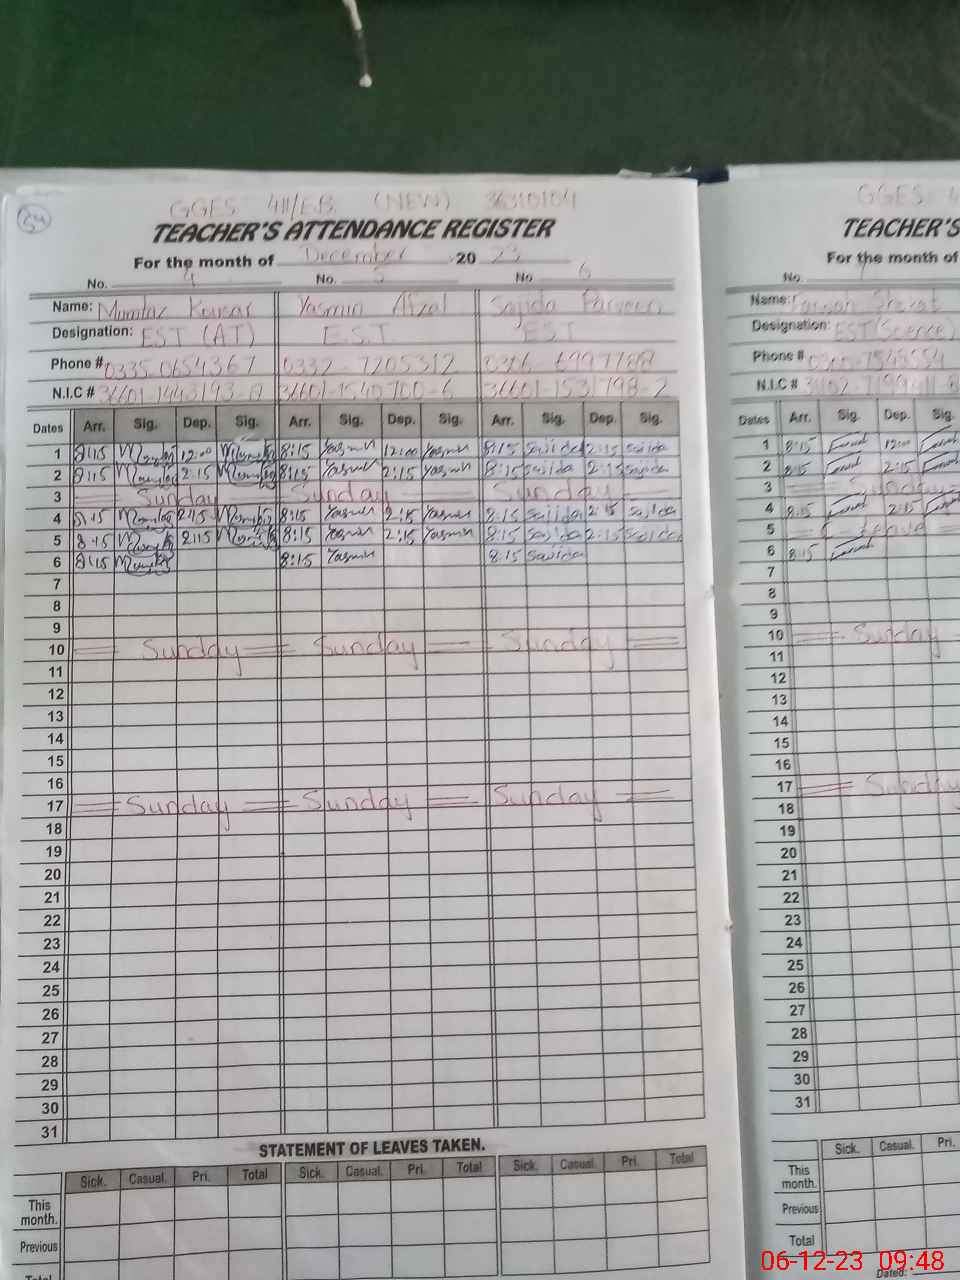 54
GGES 411/E.B. (NEW) 36310104
TEACHER'S ATTENDANCE REGISTER
For the month of December 20 23
No. 4 No. 5 No 6
Name: Mumtaz Kausar Yasmin Afzal Sajida Parveen
Designation: EST (AT) E.S.T EST
Phone # 0332-7205312
N.I.C # 36601-1531798-2
Dates Arr. Sig. Dep. Sig. Arr. Sig. Dep. Sig. Arr. Sig. Dep. Sig.
1 8:15 Mumtaz 12:00 Mumtaz 8:15 Yasmin 12:00 Yasmin 8:15 Sajida 2:15 Sajida
2 8:15 Mumtaz 2:15 Mumtaz 8:15 Yasmin 2:15 Yasmin 8:15 Sajida 2:15 Sajida
3 Sunday Sunday Sunday
4 8:15 Mumtaz 2:15 Mumtaz 8:15 Yasmin 2:15 Yasmin 8:15 Sajida 2:15 Sajida
5 8:15 Mumtaz 2:15 Mumtaz 8:15 Yasmin 2:15 Yasmin 8:15 Sajida 2:15 Sajida
6 8:15 Mumtaz 8:15 Yasmin 8:15 Sajida
7
8
9
10 Sunday Sunday Sunday
11
12
13
14
15
16
17 Sunday Sunday Sunday
18
19
20
21
22
23
24
25
26
27
28
29
30
31
STATEMENT OF LEAVES TAKEN.
Sick. Casual. Pri. Total Sick. Casual. Pri. Total Sick. Casual. Pri. Total
This
month.
Previous
Total
GGES 4
TEACHER'S
For the month of
No.
Name:
Designation: EST (Science)
Phone #
N.I.C #
Dates Arr. Sig. Dep. Sig.
1 8:15 12:00
2 8:15 2:15
3 Sunday
4 8:15 2:15
5 Leave
6 8:15
7
8
9
10 Sunday
11
12
13
14
15
16
17 Sunday
18
19
20
21
22
23
24
25
26
27
28
29
30
31
Sick. Casual. Pri.
This
month.
Previous
Total
Dated:
06-12-23 09:48